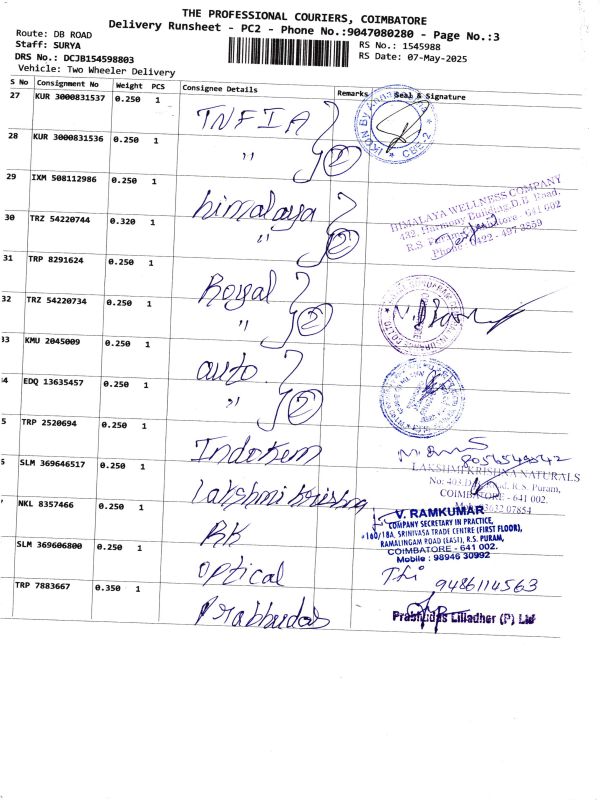 THE PROFESSIONAL COURIERS, COIMBATORE
Delivery Runsheet - PC2 - Phone No.:9047080280 - Page No.:3
Route: DB ROAD
Staff: SURYA
DRS No.: DCJB154598803
Vehicle: Two Wheeler Delivery
RS No.: 1545988
RS Date: 07-May-2025
S No Consignment No Weight PCS Consignee Details Remarks Seal & Signature
27 KUR 3000831537 0.250 1 INFIA
28 KUR 3000831536 0.250 1 " 2
CBE-2
29 IXM 508112986 0.250 1 himalaya
HIMALAYA WELLNESS COMPANY
432, Harmony Building, D.B. Road,
641 002
Phone: 0422 - 497 8859
30 TRZ 54220744 0.320 1 " 2
31 TRP 8291624 0.250 1 Royal
32 TRZ 54220734 0.250 1 " 2
33 KMU 2045009 0.250 1 auto
4 EDQ 13635457 0.250 1 " 2
5 TRP 2520694 0.250 1 Indokem
6 SLM 369646517 0.250 1 lakshmi krishna
LAKSHMI KRISHNA NATURALS
R.S. Puram,
COIMBATORE - 641 002.
NKL 8357466 0.250 1 RK
V. RAMKUMAR
COMPANY SECRETARY IN PRACTICE,
#160/18A, SRINIVASA TRADE CENTRE (FIRST FLOOR),
RAMALINGAM ROAD (EAST), R.S. PURAM,
COIMBATORE - 641 002.
Mobile : 98946 30992
SLM 369606800 0.250 1 optical
9486114563
TRP 7883667 0.350 1 Prabhudas
Prabhudas Lilladher (P) Ltd